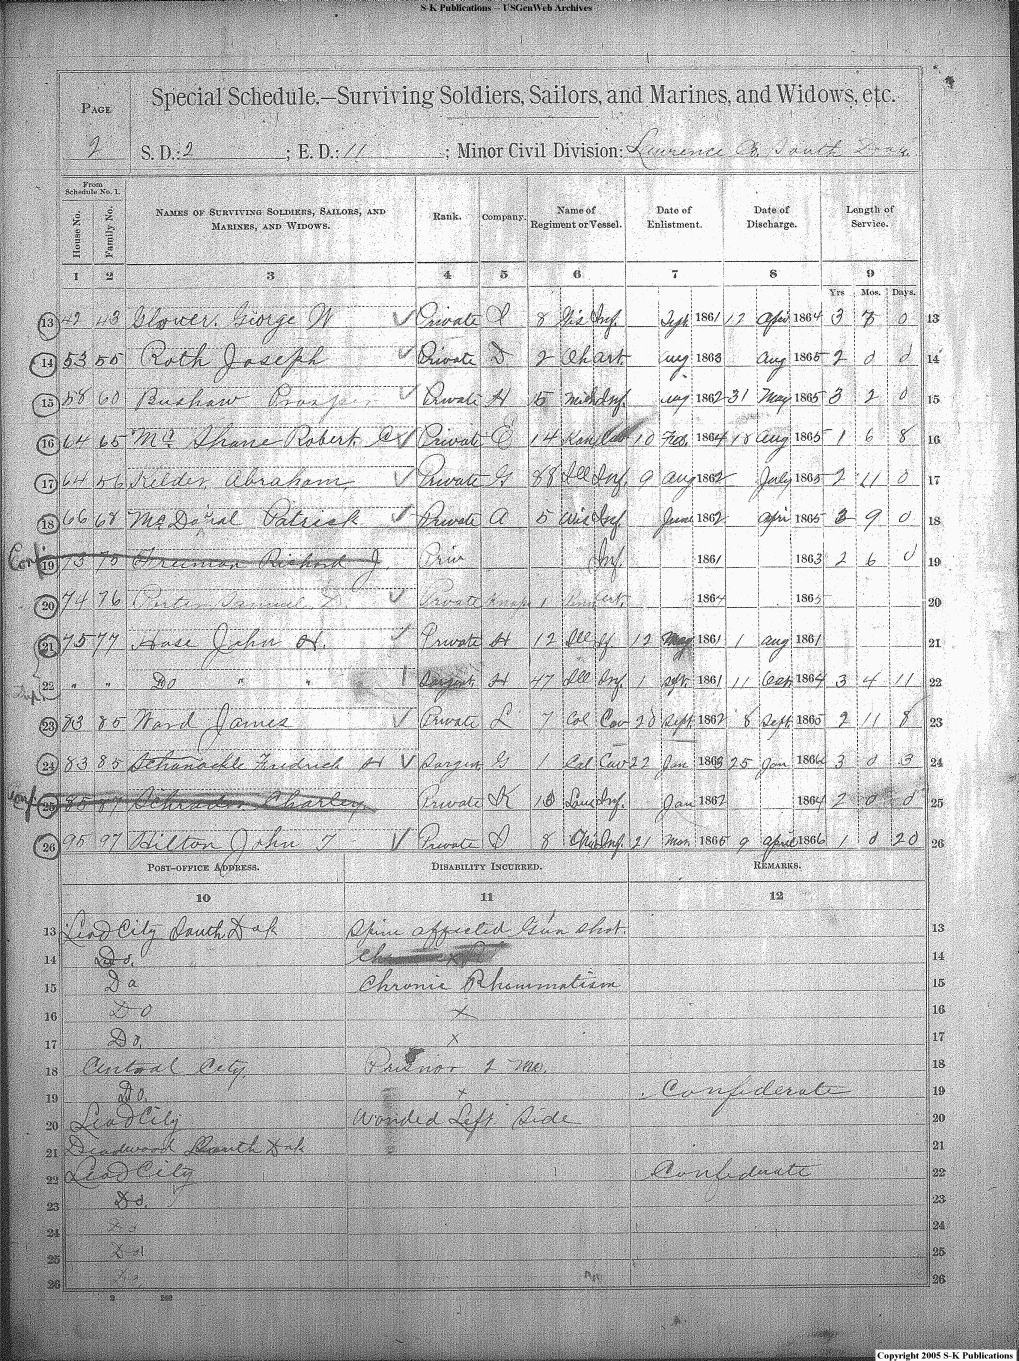 S-K Publications -- USGenWeb Archives
Page
2
Special Schedule.—Surviving Soldiers, Sailors, and Marines, and Widows, etc.
S. D.: 2 ; E. D.: 11 ; Minor Civil Division: Lawrence Co. South Dak.
From Schedule No. 1.
House No. Family No. Names of Surviving Soldiers, Sailors, and Marines, and Widows. Rank. Company. Name of Regiment or Vessel. Date of Enlistment. Date of Discharge. Length of Service.
1 2 3 4 5 6 7 8 9
Yrs Mos. Days.
13 42 43 Glover, George W Private I 8 Wis Inf. Sept 1861 12 Apri 1864 3 0 13
14 53 55 Roth Joseph Private 2 art. aug 1863 Aug 1865 2 0 0 14
15 58 60 Bushaw Private H 15 Mich Inf. aug 1862 31 May 1865 3 2 0 15
16 64 65 Mc Shane Robert Private E 14 Kan Cav 10 Feb. 1864 18 aug 1865 1 6 8 16
17 64 56 Abraham Private G 88 Ill Inf. 9 aug 1862 July 1865 2 11 0 17
18 66 68 Patrick Private A 5 Wis Inf. June 1862 apri 1865 3 9 0 18
Conf 19 73 75 Freeman Richard J Priv Inf. 1861 1863 2 6 0 19
20 74 76 Porter Samuel Private 1 1864 1865 20
21 75 77 Hose John H. Private H 12 Ill 12 May 1861 1 aug 1861 21
22 " " Do " " Sargent H 47 Ill Inf. 1 sept. 1861 11 Oct 1864 3 4 11 22
23 83 85 Ward James Private L 7 Col Cav 20 Sept. 1862 8 Sept. 1865 2 11 8 23
24 83 85 Fredrich H Sargen G 1 Cal Cav 22 Jan 1863 25 Jan 1866 3 0 3 24
conf 25 85 87 Schrader Charley Private K Inf. Jan 1862 1864 2 0 0 25
26 95 97 Hilton John T Private I 8 Inf. 21 Mar. 1865 9 april 1866 1 0 20 26
Post-office Address. Disability Incurred. Remarks.
10 11 12
13 Lead City South Dak Spine affected Gun shot. 13
14 Do. 14
15 Do Chronic Rhummatism 15
16 Do x 16
17 Do. x 17
18 Central City Prisnor 2 mo. 18
19 Do. x Confederate 19
20 Lead City Wonded Left Side 20
21 Deadwood South Dak 21
22 Lead City Confederate 22
23 Do. 23
24 Do 24
25 Do 25
26 Do. 26
Copyright 2005 S-K Publications